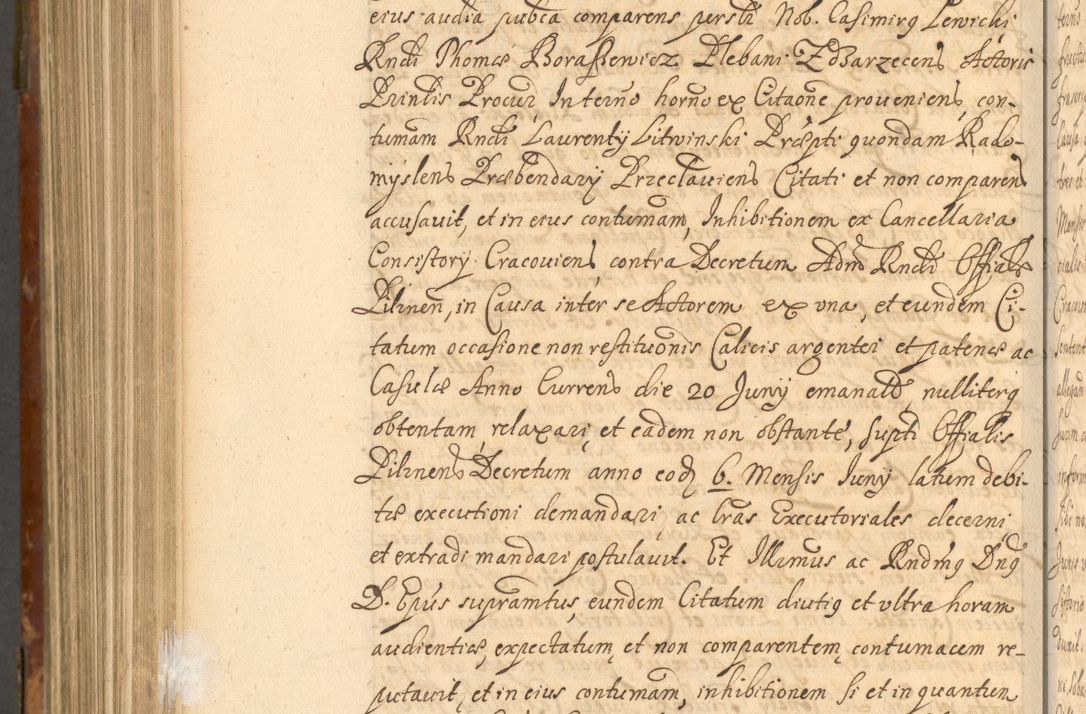 eius audia pubca comparens perslr Nob. Casimirg Lewicki
Rndi Thomæ Boraszewicz Plebani Zdzarzecens Actoris
Prinlis Procur In termo horno ex Citaone proueniens, con-
tumam Rndi Laurentij Litwinski Præpti quondam Rado-
myslens Præbendarij Przeclauiens Citati et non comparens
accusauit, et in eius contumam, Inhibitionem ex Cancellaria
Consistorij Cracouiens contra Decretum Adm Rndi Offialis
Pilznen, in Causa inter se Actorem ex vna, et eundem Ci-
tatum occasione non restituonis Calicis argentei et patenæ ac
Casulæ Anno Currens die 20 Junij emanatd, nulliterq
obtentam, relaxari, et eadem non obstante, supti Offialis
Pilznens Decretum anno eod 6. Mensis Junij latum debi-
tæ executioni demandari, ac lras Executoriales decerni
et extradi mandari postulauit. Et Illrmus ac Rndmg Dng
D. Epus supramtus, eundem Citatum diutiq et vltra horam
audientiæ, expectatum, et non comparentem, contumacem re-
putauit, et in eius contumam, inhibitionem si et in quantum